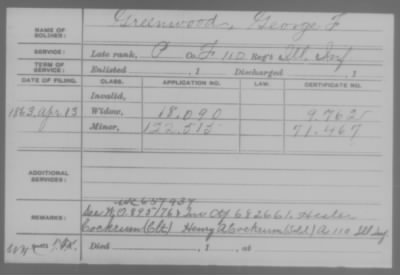 NAME OF SOLDIER: Greenwood, George F
SERVICE: Late rank, P Co. F 110 Reg't Ill. Inf
TERM OF SERVICE: Enlisted , 1 Discharged , 1
DATE OF FILING. CLASS. APPLICATION NO. LAW. CERTIFICATE NO.
Invalid,
1863, Apr. 13 Widow, 18,090 9,762
Minor, 122,515 71,467
ADDITIONAL SERVICES:
REMARKS: See W.O. 895176 & Inv Ctf 682661, Hester
Cockerum (Clt) Henry A Cockerum (Sol) A 110 Ill Inf.
Died , 1 , at